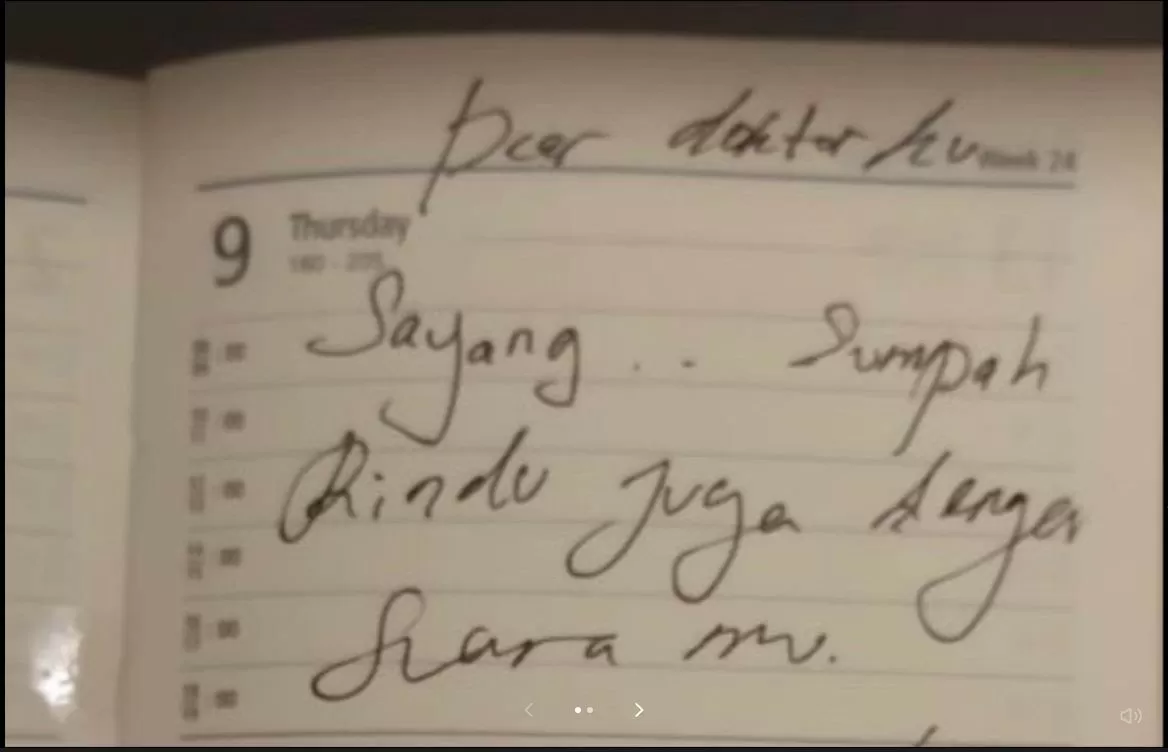 Dear doktor ku
Week 24
9 Thursday
Sayang .. Sumpah
Rindu juga denger
Suara mu.